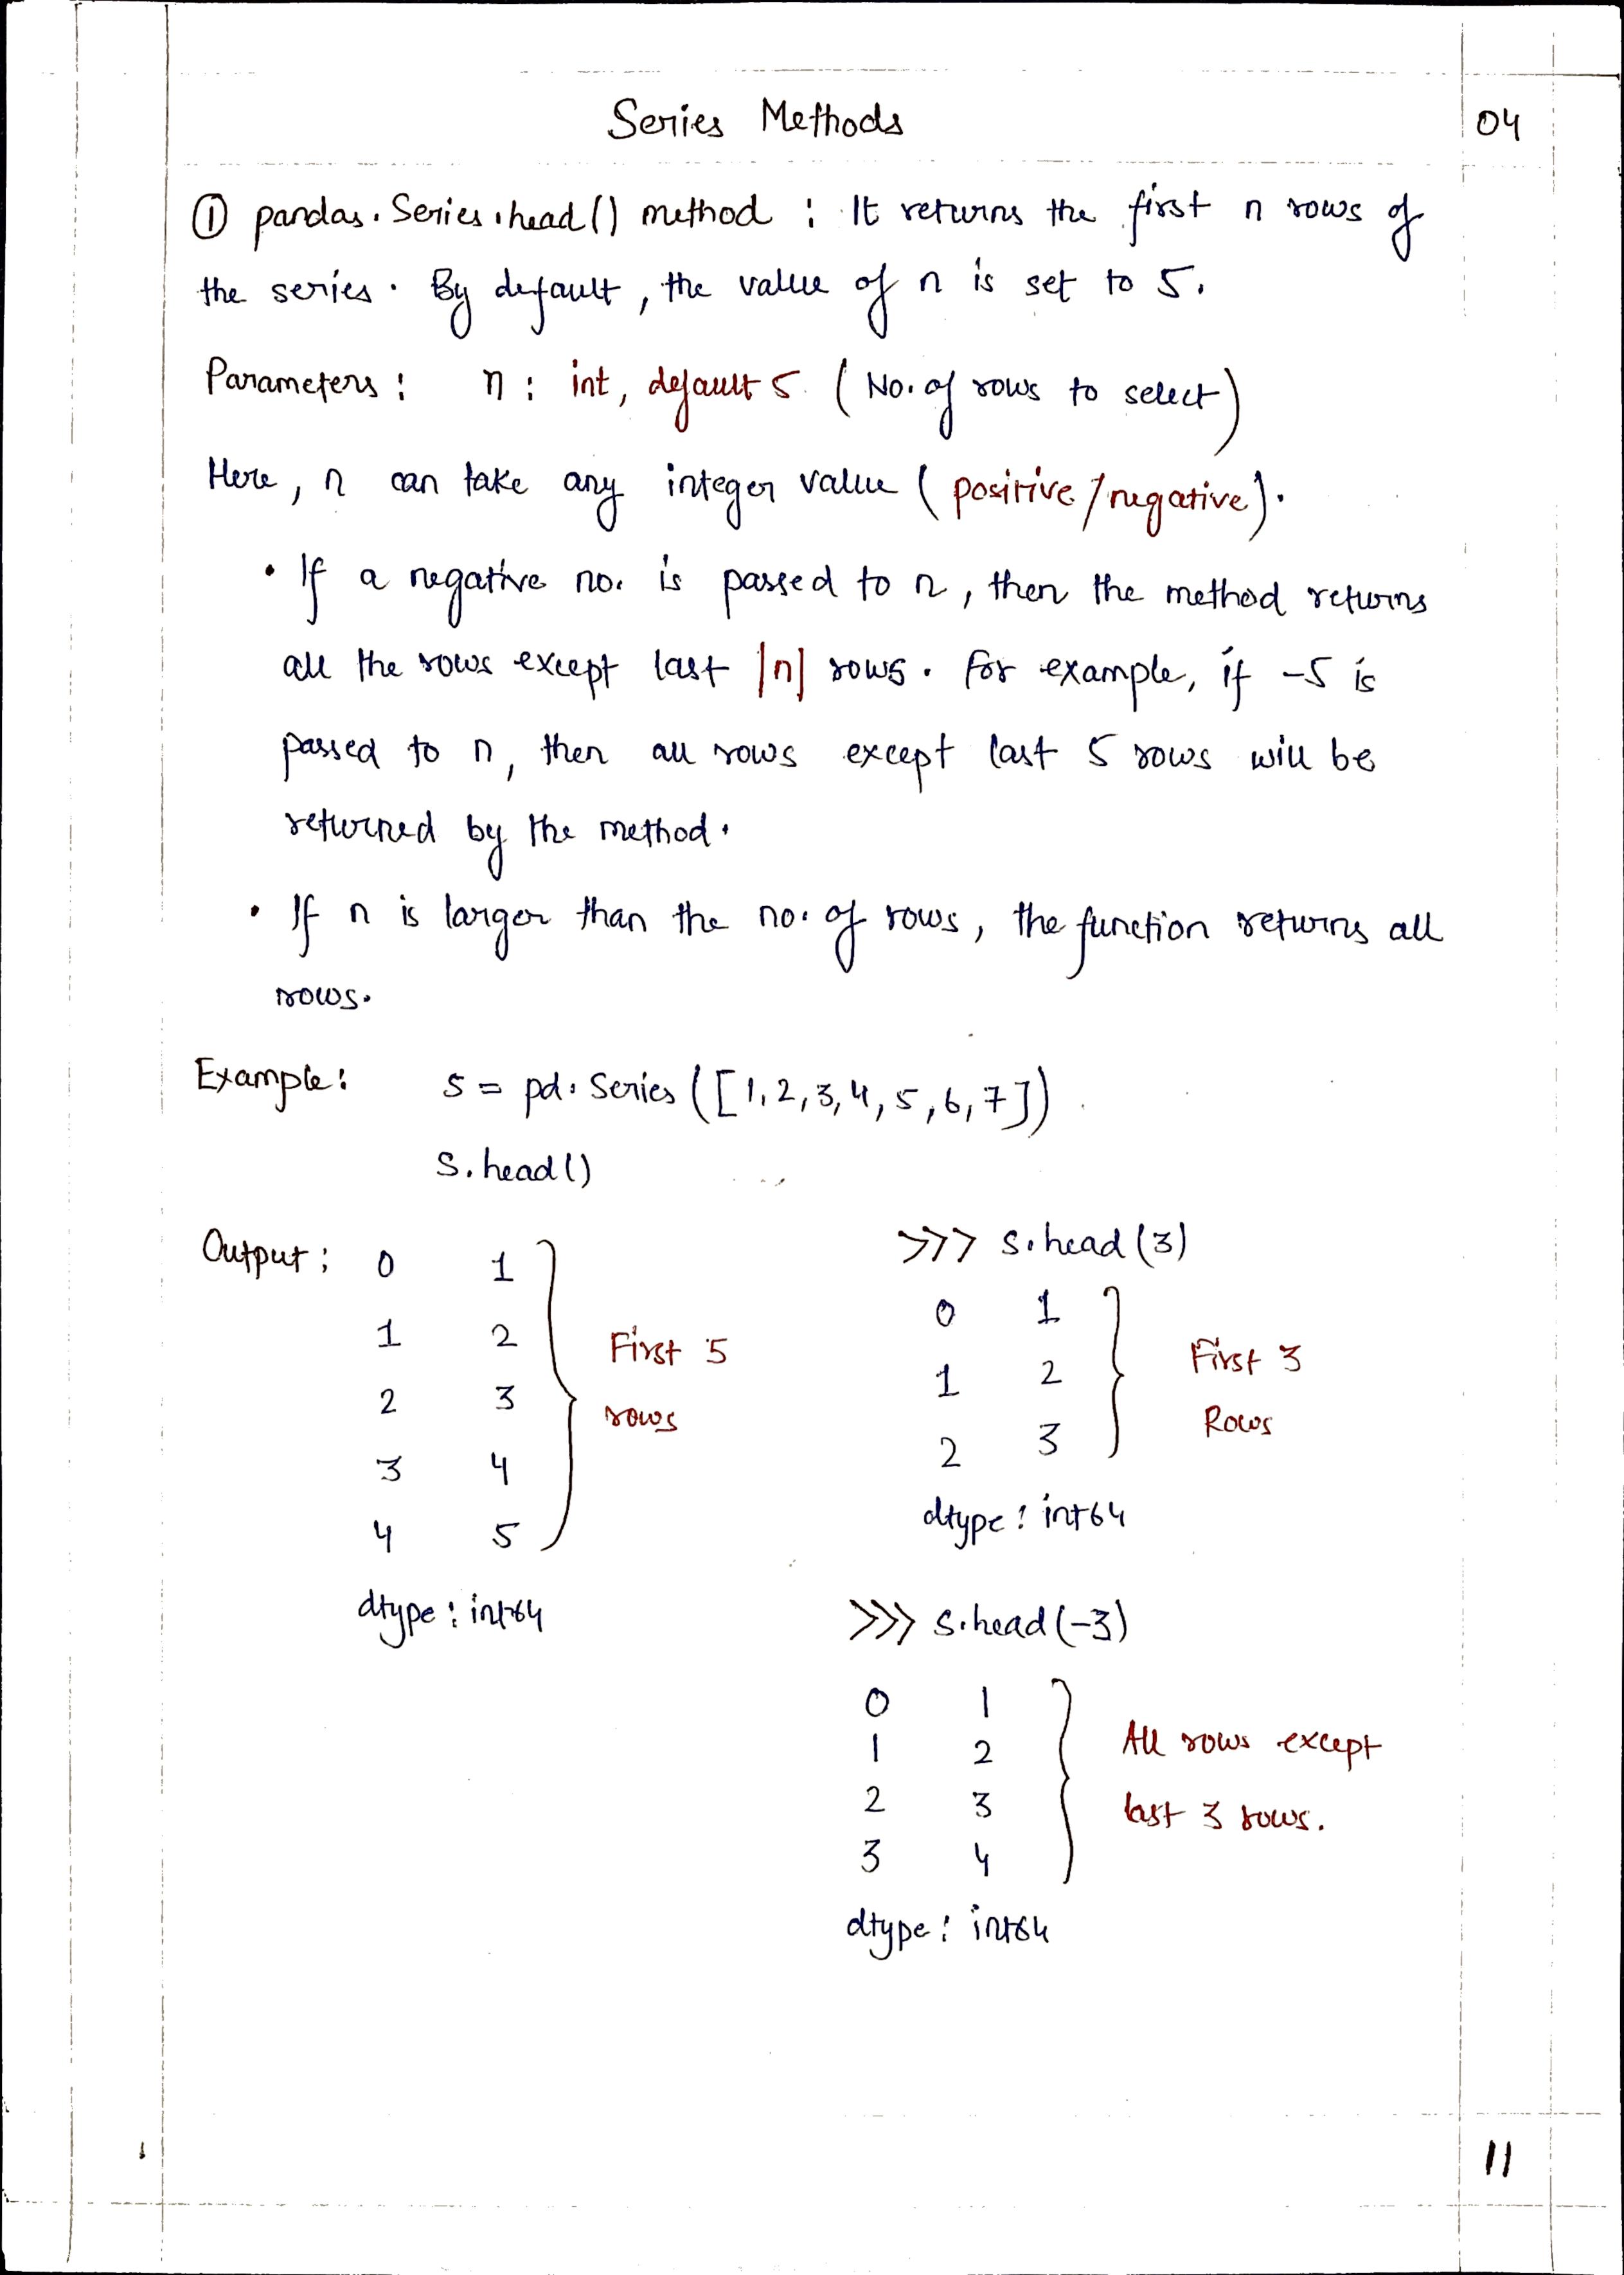 Series Methods
04
① pandas.Series.head() method : It returns the first n rows of
the series. By default, the value of n is set to 5.
Parameters : n : int, default 5 (No. of rows to select)
Here, n can take any integer value (positive/negative).
• If a negative no. is passed to n, then the method returns
all the rows except last |n| rows. For example, if -5 is
passed to n, then all rows except last 5 rows will be
returned by the method.
• If n is larger than the no. of rows, the function returns all
rows.
Example: s = pd.Series([1,2,3,4,5,6,7])
s.head()
Output:
0 1
1 2
2 3
3 4
4 5
First 5
rows
dtype: int64
>>> s.head(3)
0 1
1 2
2 3
First 3
Rows
dtype: int64
>>> s.head(-3)
0 1
1 2
2 3
3 4
All rows except
last 3 rows.
dtype: int64
11